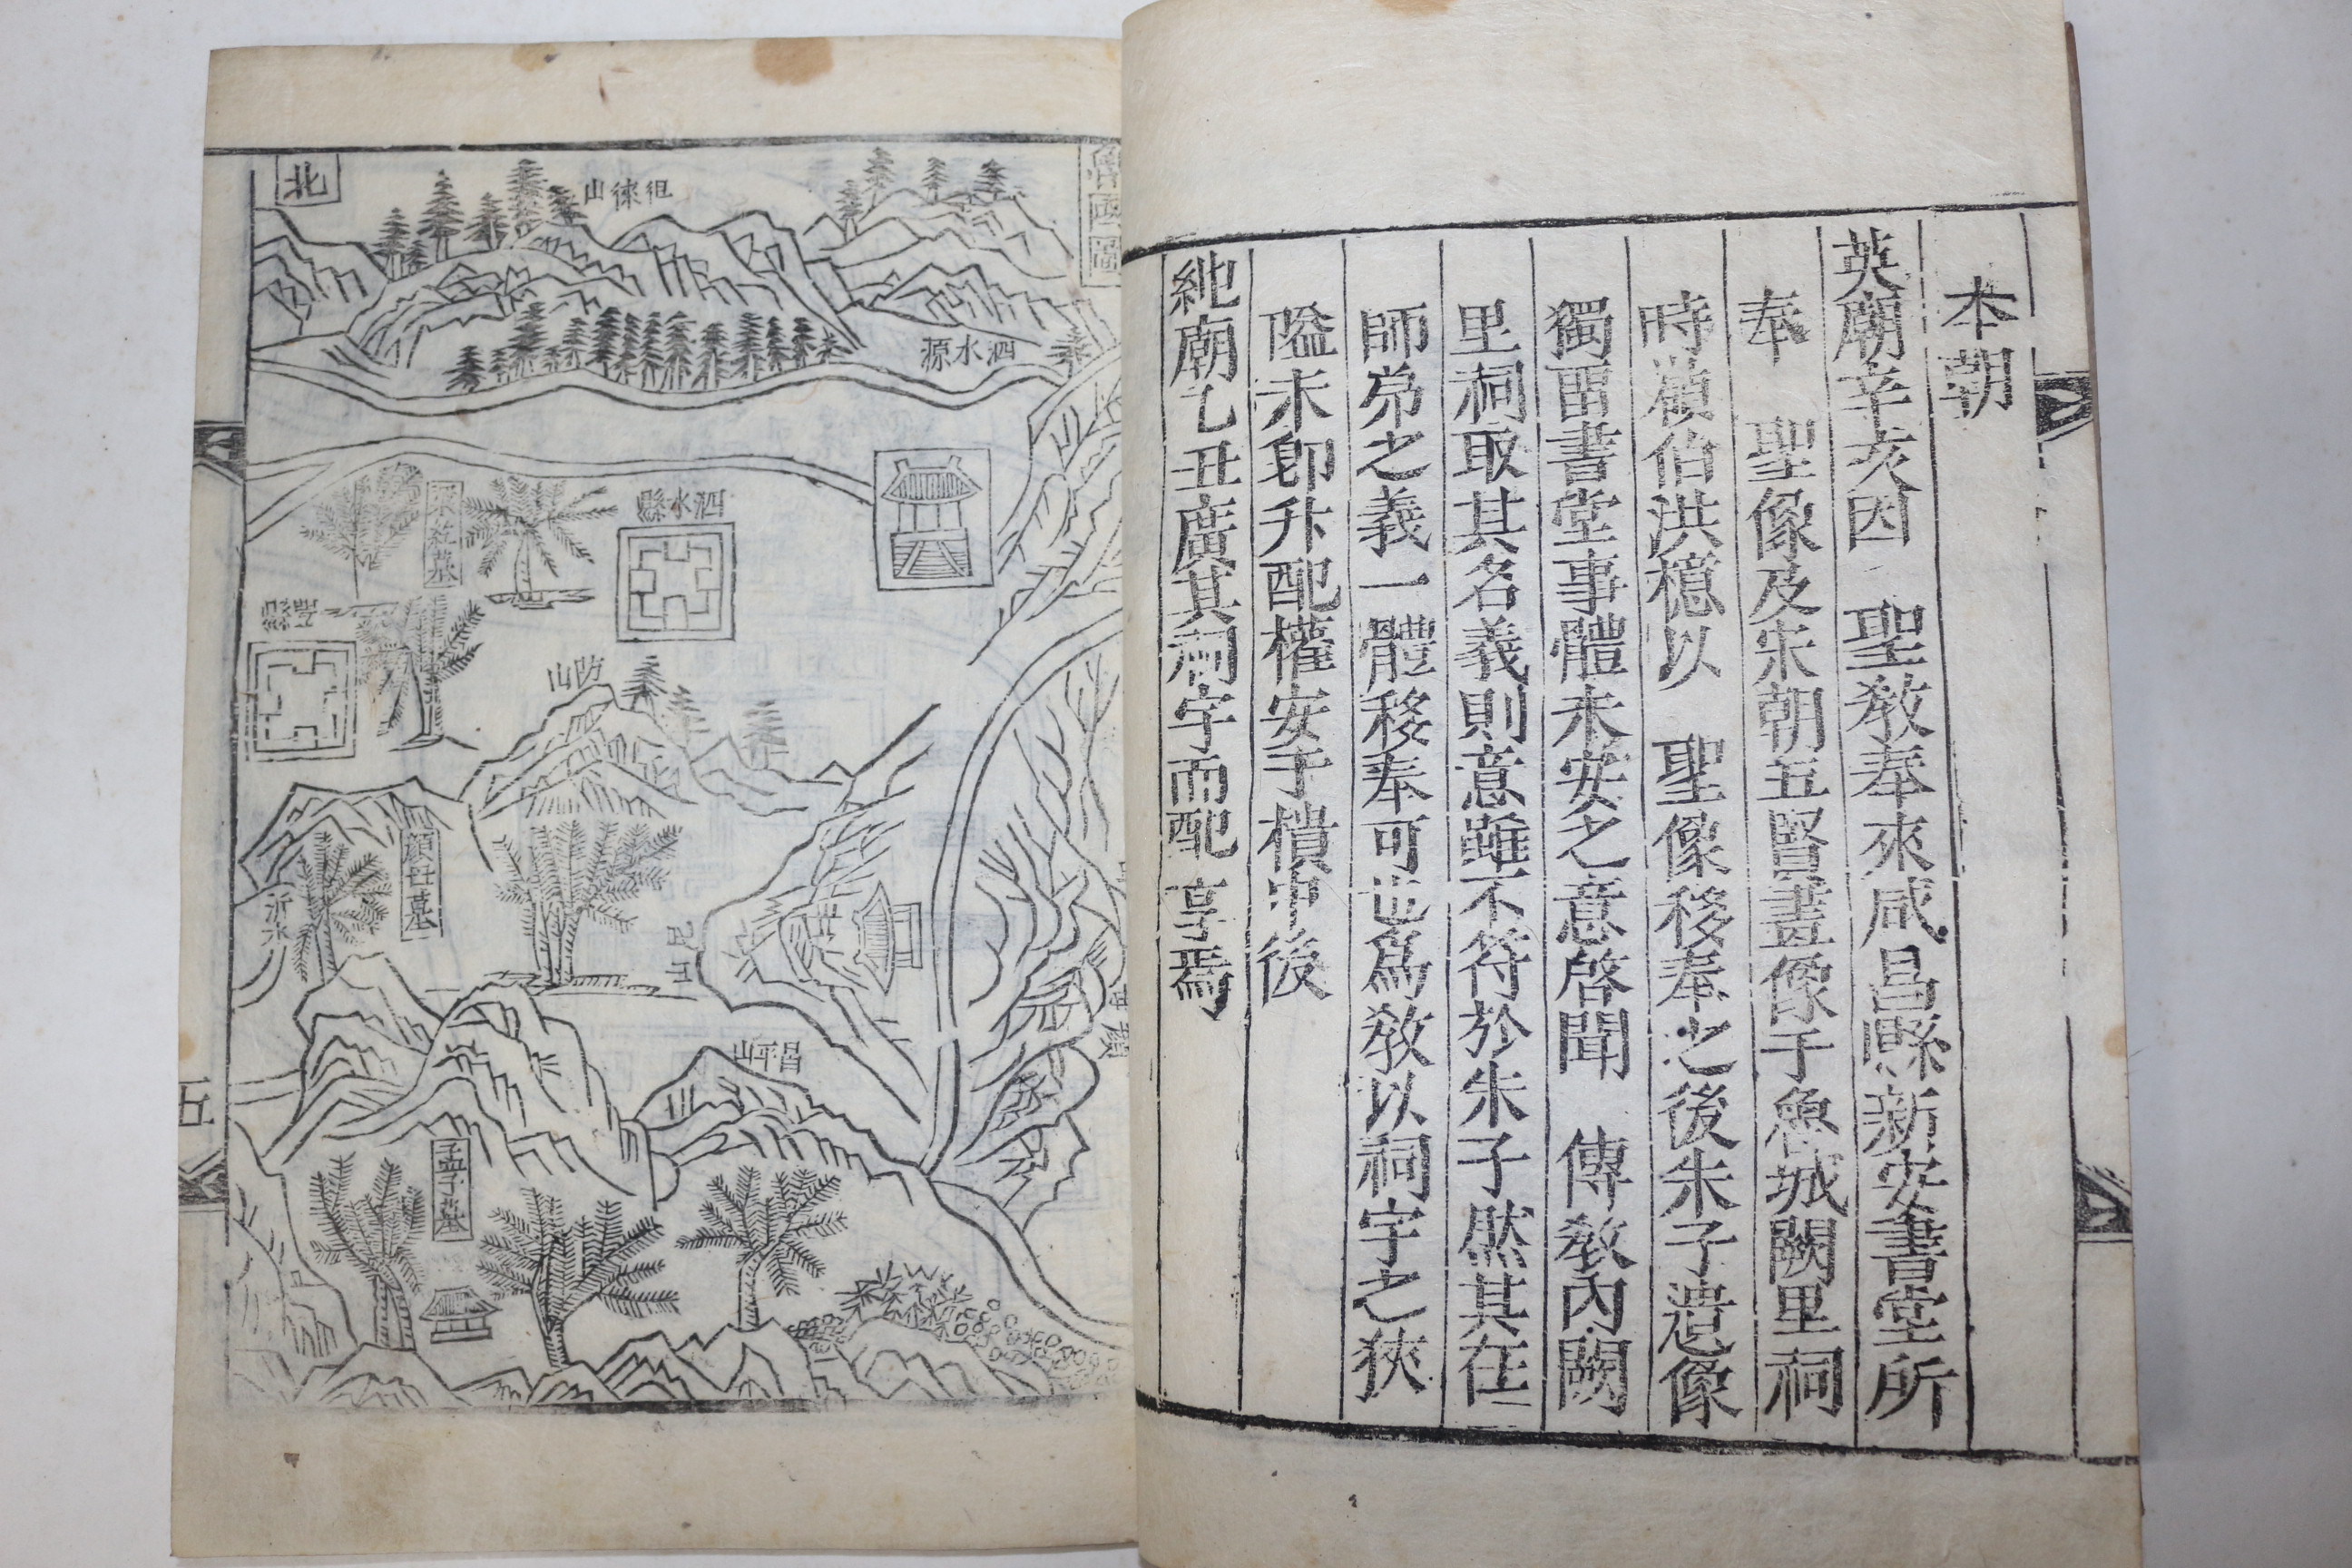 本朝
英廟辛亥因 聖教奉來咸昌縣新安書堂所
奉 聖像及宋朝五賢畫像于魯城闕里祠
時嶺伯洪檍以 聖像移奉之後朱子遺像
獨留書堂事體未安之意啓聞 傳教內闕
里祠取其名義則意雖不符於朱子然其在
師弟之義一體移奉可也爲教以祠宇之狹
隘未卽升配權安于櫝中後
純廟乙丑廣其祠宇而配 享焉
魯國圖
北
徂徠山
泗水源
泗水縣
梁紇墓
防山
顔母墓
沂水
尼山
昌平山
孟子墓
五